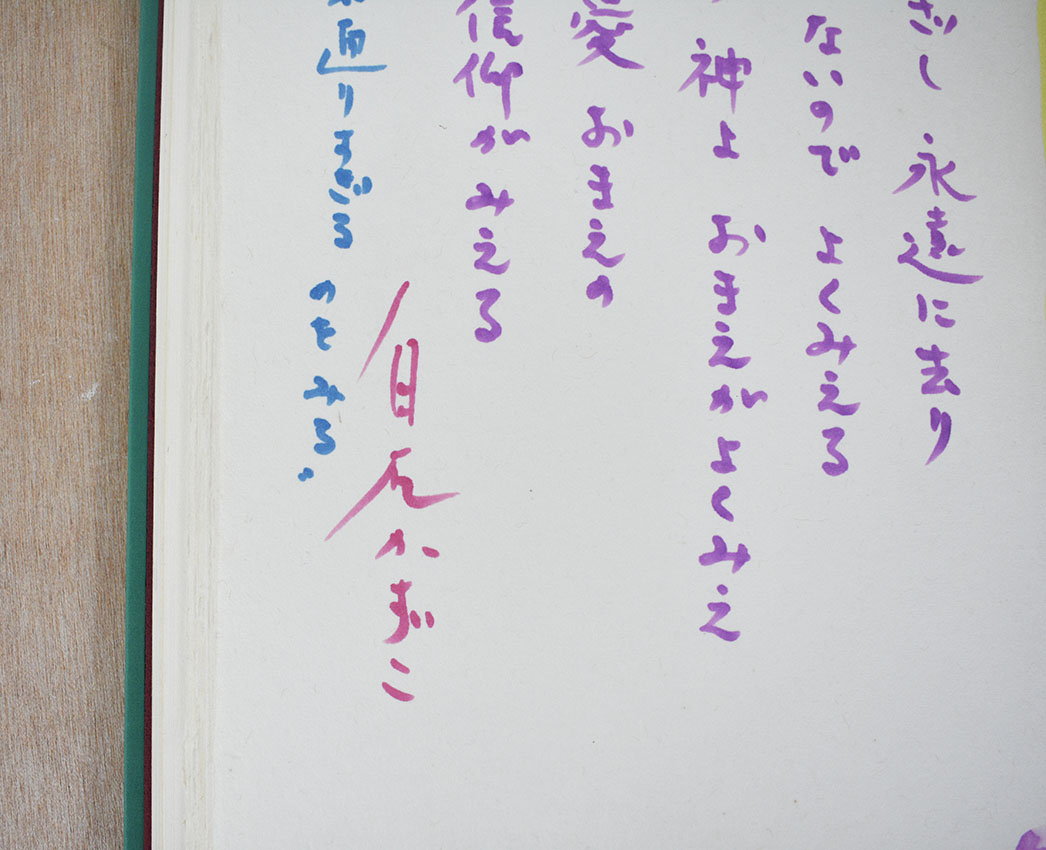 ざし 永遠に去り
ないので よくみえる
神よ おまえがよくみえ
愛 おまえの
信仰が みえる
白石かずこ
通りすぎる のを みる。